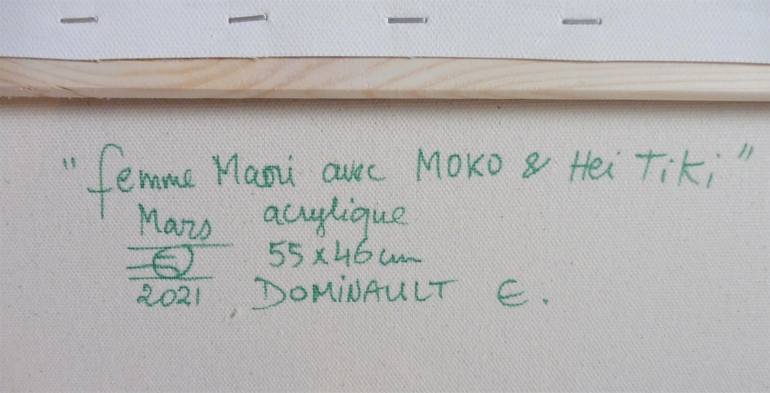 "femme Maori avec MOKO & Hei Tiki"
Mars acrylique
E 55x46cm
2021 DOMINAULT E.